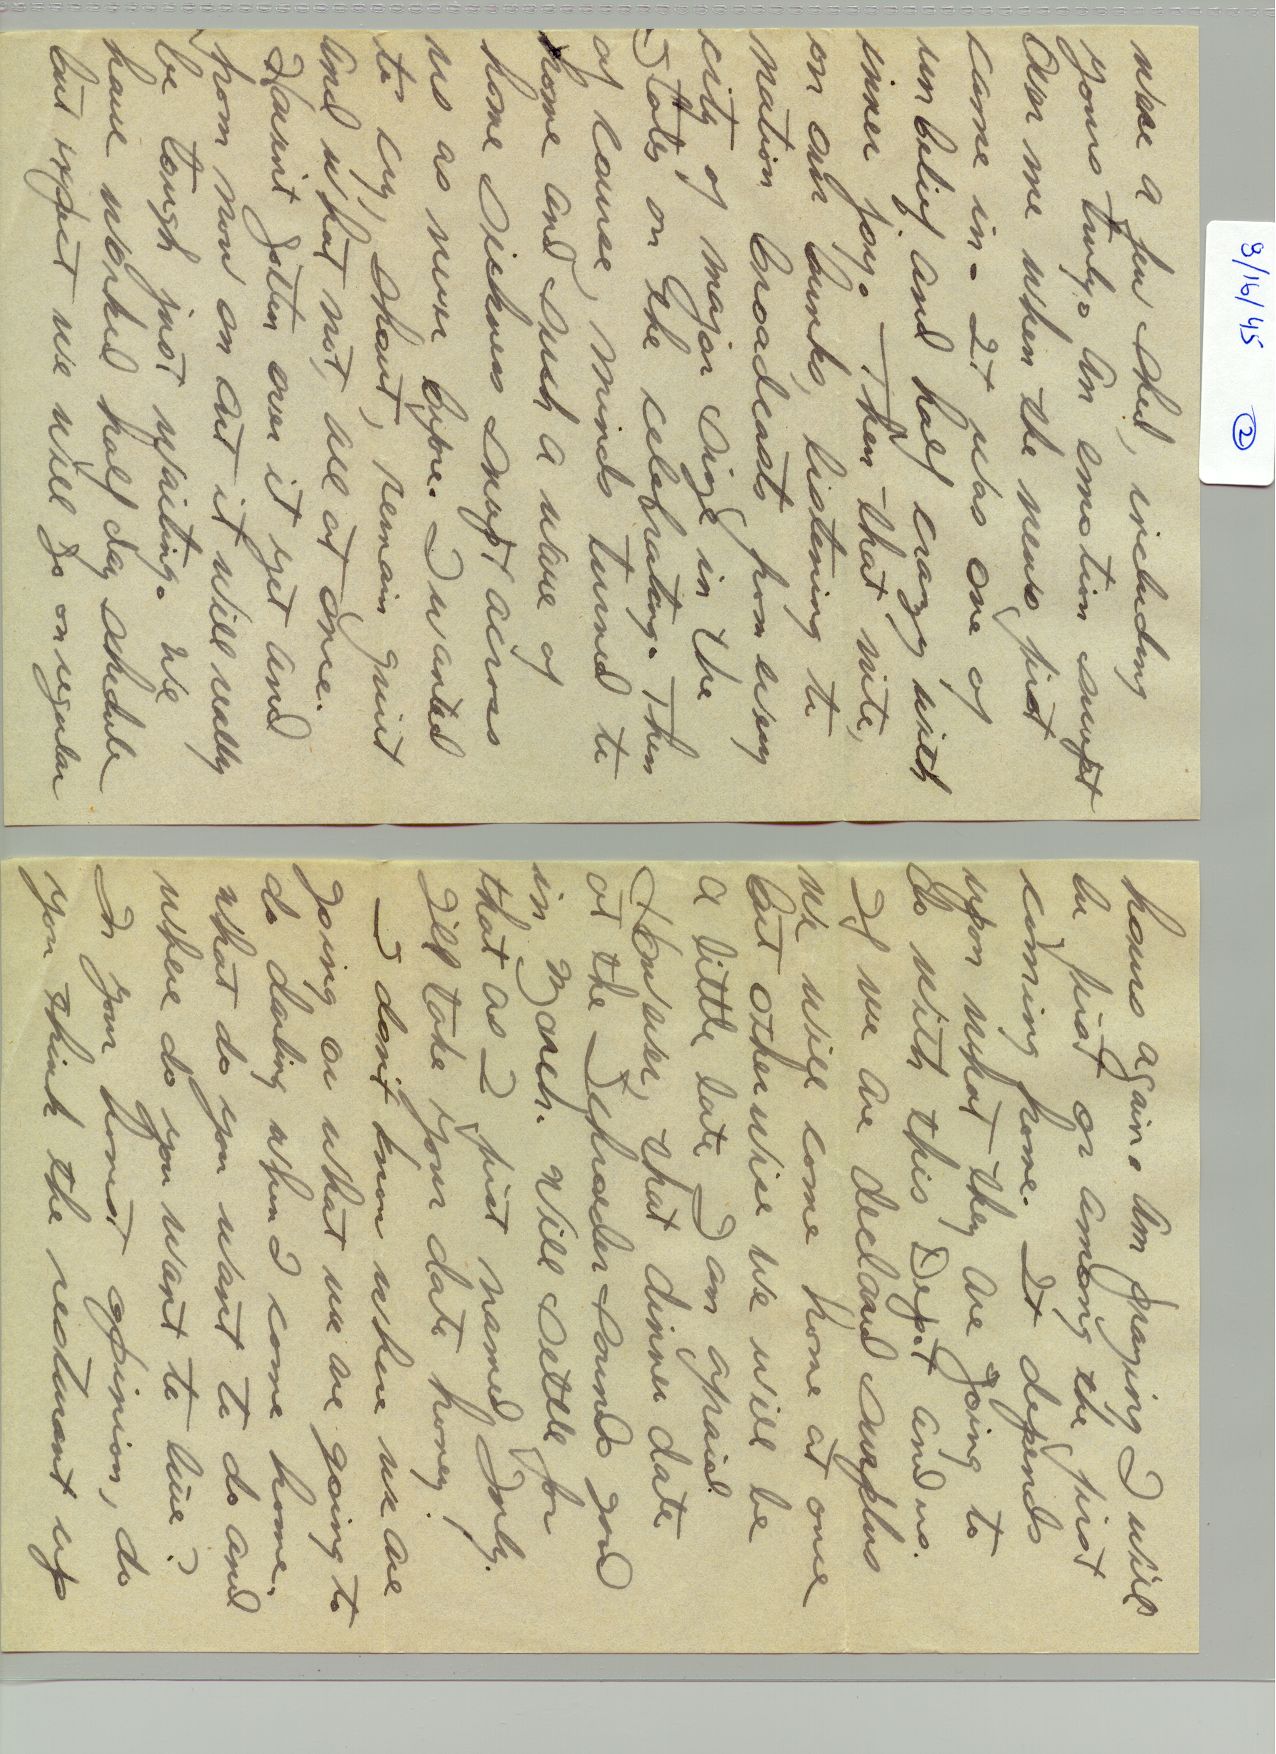 8/16/45 2
were a few shed, including
yours truly. An emotion swept
over me when the news first
came in. It was one of
unbelief and half crazy with
inner joy. Then that nite,
on our bunks, listening to
nation broadcasts from every
city of major size in the
States on the celebrating. Then
of course, minds turned to
home and such a wave of
home sickness swept across
us as never before. I wanted
to cry, shout, remain quiet
and what not, all at once.
Havint gotten over it yet and
from now on out it will really
be tough just waiting. We
have worked half day schedule
but expect we will go on regular
hours again. Am praying I will
be first or among the first
coming home. It depends
upon what they are going to
do with this Depot and us.
If we are declared surplus
we will come home at once
but otherwise we will be
a little late I am afraid.
However, that dinner date
at the Schrader sounds good
in March. Will settle for
that as I first named July.
I'll take your date honey.
I don't know where we are
going or what we are going to
do darling when I come home.
What do you want to do and
where do you want to live?
In your honest opinion, do
you think the resturant up